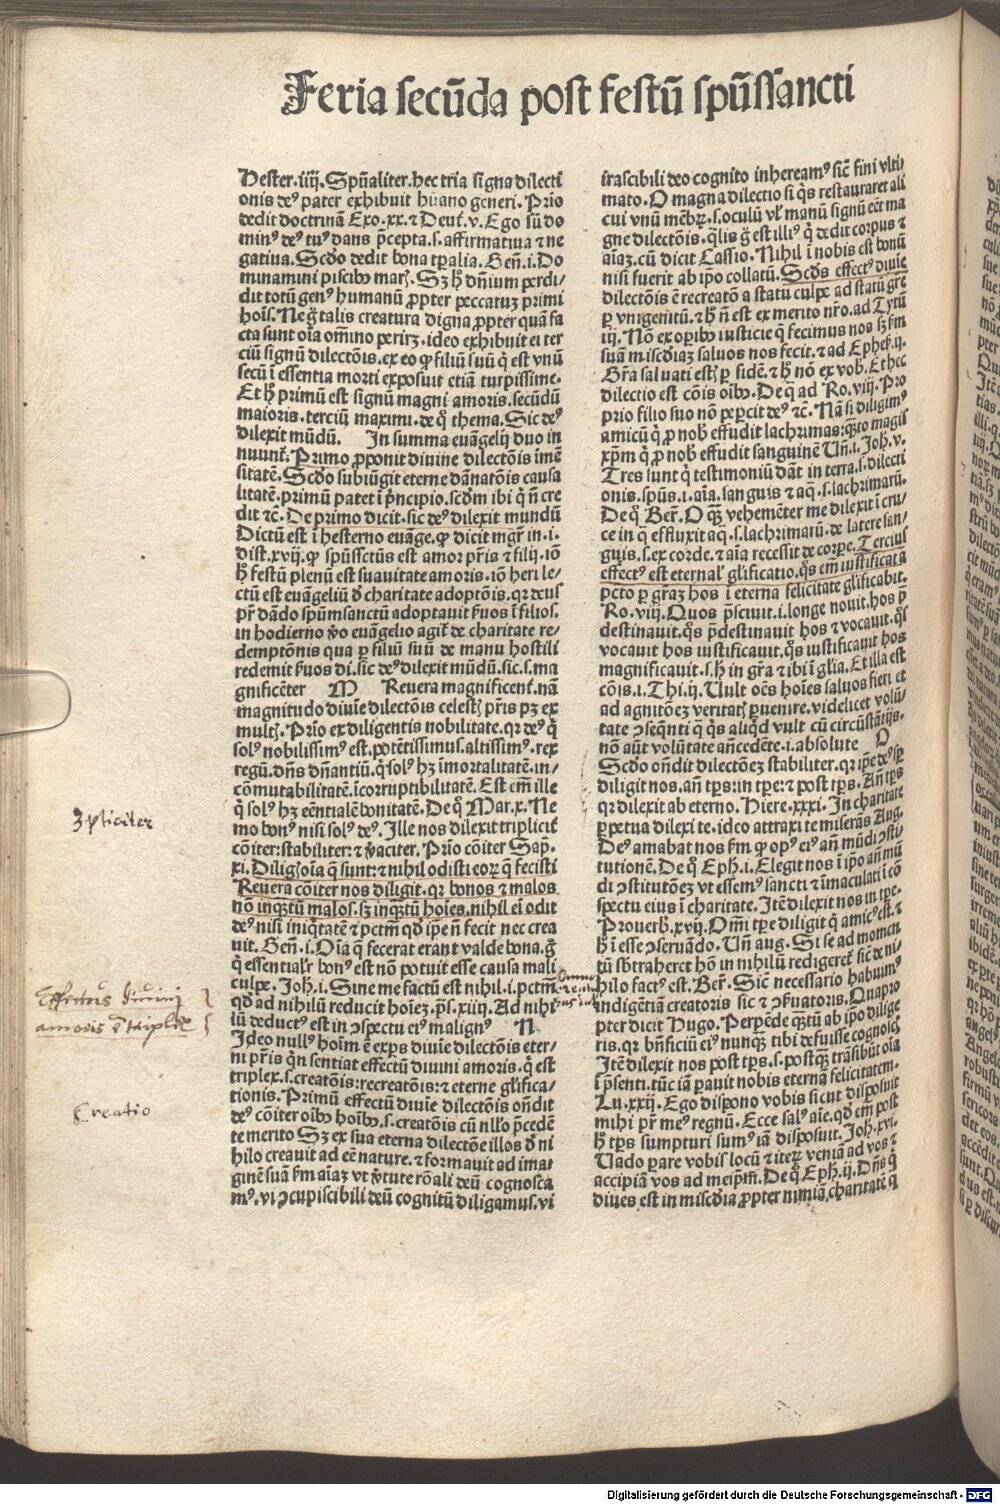 Feria secūda post festū spūssancti
Hester.iiij. Spūaliter.hec tria signa dilecti
onis deꝰ pater exhibuit hūano generi. Prīo
dedit doctrinā Exo.xx.⁊ Deut̄.v. Ego sū do
minꝰ deꝰ tuꝰ dans p̄cepta.s.affirmatiua ⁊ ne
gatiua. Scd̄o dedit bona tꝑalia. Gen̄.i. Do
minamini piscibꝰ mar̄. Sꝫ h̄ dn̄ium perdi/
dit totū genꝰ humanū ꝓpter peccatuꝫ primi
hoīs. Ne ḡ talis creatura digna ꝓpter quā fa
cta sunt oīa om̄ino perirꝫ. ideo exhibuit ei ter
ciū signū dilectōis. ex eo ꝙ filiū suū q̇ est vnū
secū ī essentia morti exposuit etiā turpissime.
Et h̄ primū est signū magni amoris. secūdū
maioris. terciū maximi. de q̊ thema. Sic deꝰ
dilexit mūdū. In summa euāgelij duo in
nuunt̄. Primo ꝓponit diuine dilectōis īmē
sitatē. Scd̄o subiūgit eterne dānatōis causa
litatē. primū patet ī p̄ncipio. scd̄m ibi q̇ n̄ cre
dit ⁊c̄. De primo dicit. sic deꝰ dilexit mundū
Dictū est ī hesterno euāge. ꝙ dicit mgr̄ in.i.
dist.xvij. ꝙ spūssctūs est amor pr̄is ⁊ filij. iō
h̄ festū plenū est suauitate amoris. iō heri le/
ctū est euāgeliū d̄ charitate adoptōis. qꝛ deus
pr̄ dādo spūmsanctū adoptauit ẜuos ī filios.
in hodierno v̊o euāgelio agit̄ de charitate re/
demptōnis qua ꝑ filiū suū de manu hostili
redemit ẜuos di. sic deꝰ dilexit mūdū. sic.s.ma
gnificēter M Reuera magnificent̄. nā
magnitudo diuīe dilectōis celestꝭ pr̄is pꝫ ex
multꝭ. Prīo ex diligentis nobilitate. qꝛ deꝰ q̇
solꝰ nobilissimꝰ est. potētissimus. altissimꝰ. rex
regū. dn̄s dn̄antiū. q̇ solꝰ hꝫ īmortalitatē. in/
cōmutabilitatē. īcorruptibilitatē. Est em̄ ille
q̇ solꝰ hꝫ eēntialē bonitatē. De q̊ Mar.x. Ne
mo bonꝰ nisi solꝰ deꝰ. Ille nos dilexit triplicit̄
cōiter: stabiliter: ⁊ v̊aciter. Prīo cōiter Sap̄.
xi. Diligis oīa q̄ sunt: ⁊ nihil odisti eoꝝ q̄ fecisti
Reuera cōiter nos diligit. qꝛ bonos ⁊ malos
nō inqꝫtū malos. sꝫ inqꝫtū hoīes. nihil eī odit
deꝰ nisi iniq̄tatē ⁊ pctm̄ qd̄ ip̄e n̄ fecit nec crea
uit. Gen̄.i. Oīa q̄ fecerat erant valde bona. ḡ
q̇ essentialr̄ bonꝰ est nō potuit esse causa mali
culpe. Joh.i. Sine me factū est nihil.i.pctm̄
qd̄ ad nihilū reducit hoīeꝫ. p̄s.xiiij. Ad nihi
lū deductꝰ est in ꝯspectu eiꝰ malignꝰ N
Ideo nullꝰ hoīm ē exꝑs diuīe dilectōis eter/
ni pr̄is q̇n sentiat effectū diuini amoris. q̇ est
triplex.s.creatōis: recreatōis: ⁊ eterne gl̄ifica/
tionis. Primū effectū diuīe dilectōis on̄dit
deꝰ cōiter oībꝰ hoībꝰ.s.creatōis cū nll̄o p̄cedē
te merito Sꝫ ex sua eterna dilectōe illos d̄ ni
hilo creauit ad eē nature. ⁊ formauit ad ima/
ginē suā ẜm aīaꝫ vt v̊tute rōnali deū cognosca
mꝰ. vi ꝯcupiscibili deū cognitū diligamus. vi
irascibili deo cognito inhereamꝰ sic̄ fini vlti
mato. O magna dilectio si q̇s restauraret ali
cui vnū mēbꝝ.s.oculū vl̓ manū signū eēt ma
gne dilectōis. q̄lis ḡ est illiꝰ q̇ dedit corpus ⁊
aīaꝫ. cū dicit Cassio. Nihil ī nobis est bonū
nisi fuerit ab ip̄o collatū. Scd̄s effectꝰ diuīe
dilectōis ē recreatō a statu culpe ad statū gr̄e
ꝑ vnigenitū. ⁊ h̄ n̄ est ex merito nr̄o. ad Tytū
iij. Nō ex oꝑibꝰ iusticie q̄ fecimus nos sꝫ ẜm
suā misc̄diaꝫ saluos nos fecit. ⁊ ad Ephes̄.ij.
Gr̄a saluati estꝭ ꝑ fidē. ⁊ h̄ nō ex vob̄. Et hec
dilectio est cōis oībꝰ. De q̄ ad Ro.viij. Pro
prio filio suo nō peꝑcit deꝰ ⁊c̄. Nā si diligimꝰ
amicū q̇ ꝓ nob̄ effudit lachrimas: q̄nto magis
xp̄m q̇ ꝓ nob̄ effudit sanguinē Un̄.i. Joh.v.
Tres sunt q̇ testimoniū dāt in terra.s.dilecti
onis. spūs.i.aīa. sanguis ⁊ aq̄.s.lachrimarū.
De q̊ Ber̄. O qꝫ vehemēter me dilexit ī cru/
ce in q̄ effluxit aq̄.s.lachrimarū. de latere san/
guis.s.ex corde. ⁊ aīa recessit de corpe. Tercius
effectꝰ est eternal̓ gl̄ificatio. q̇s em̄ iustificat a
pctō ꝑ gr̄aꝫ hos ī eterna felicitate gl̄ificabit.
Ro.viij. Quos p̄sciuit.i.longe nouit. hos p̄
destinauit. q̊s p̄destinauit hos ⁊ vocauit. q̊s
vocauit hos iustificauit. q̊s iustificauit hos
magnificauit.s.h̄ in gr̄a ⁊ ibi ī gl̄ia. Et illa est
cōis.i.Thi.ij. Uult oēs hoīes saluos fieri et
ad agnitōeꝫ veritatꝭ ꝑuenire. videlicet volū/
tate ꝯseq̄nti q̄ q̇s aliqd̄ vult cū circūstātijs.
nō aūt volūtate an̄cedēte.i.absolute O
Scd̄o on̄dit dilectōeꝫ stabiliter. qꝛ ip̄e deꝰ sꝑ
diligit nos. an̄ tp̄s: in tpe: ⁊ post tp̄s. An̄ tp̄s
qꝛ dilexit ab eterno. Hiere.xxxi. In charitate
ꝑpetua dilexi te. ideo attraxi te miserās Aug.
Deꝰ amabat nos ẜm ꝙ opꝰ eiꝰ an̄ mūdi ꝯsti/
tutionē. De q̊ Eph.i. Elegit nos ī ip̄o an̄ mū
di ꝯstitutōeꝫ vt essemꝰ sancti ⁊ īmaculati ī cō
spectu eius ī charitate. Itē dilexit nos in tpe.
Prouerb̄.xvij. Om̄i tpe diligit q̇ amicꝰ est. ⁊
h̄ ī esse ꝯseruādo. Un̄ aug. Si se ad momen
tū sb̄traheret hō in nihilū redigeret̄ sic̄ de ni/
hilo factꝰ est. Ber̄. Sic̄ necessario habuimꝰ
indigētiā creatoris sic ⁊ ꝯẜuatoris. Quapro
pter dicit Hugo. Perpēde qꝫtū ab ip̄o dilige
ris. qꝛ bn̄ficiū eiꝰ nunqꝫ tibi defuisse cognoscꝭ
Itē dilexit nos post tp̄s.s.postqꝫ trāsibūt oīa
ī p̄senti. tūc iā ꝑauit nobis eternā felicitatem.
Lu.xxij. Ego dispono vobis sicut disposuit
mihi pr̄ meꝰ regnū. Ecce salꝰ aīe. qd̄ em̄ post
h̄ tp̄s sumpturi sumꝰ iā disposuit. Joh.xvi.
Uado ꝑare vobis locū ⁊ iteꝝ veniā ad vos ⁊
accipiā vos ad meip̄m̄. De q̊ Eph.ij. Dn̄s q̇
diues est in misc̄dia ꝓpter nimiā charitatē q̄
3pliciter
Effectus diuini
amoris ē triplex
Creatio
Digitalisierung gefördert durch die Deutsche Forschungsgemeinschaft - DFG